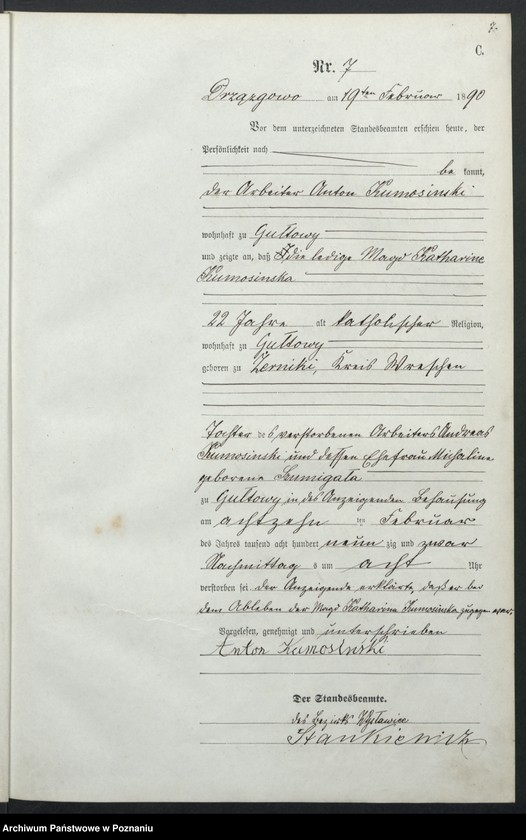 7.
C.
Nr. 7
Drzązgowo am 19ten Februar 1890
Vor dem unterzeichneten Standesbeamten erschien heute, der
Persönlichkeit nach
be kannt,
der Arbeiter Anton Kumosinski
wohnhaft zu Gułtowy
und zeigte an, daß die ledige Magd Katharine
Kumosinska
22 Jahre alt katholischer Religion,
wohnhaft zu Gułtowy
geboren zu Zerniki, Kreis Wreschen
Tochter des verstorbenen Arbeiters Andreas
Kumosinski und dessen Ehefrau Michaline
geborene Szumigała
zu Gułtowy in des Anzeigenden Behausung
am achtzehn ten Februar
des Jahres tausend acht hundert neun zig und zwar
Nachmittag s um acht Uhr
verstorben sei. der Anzeigende erklärte, daß er bei
dem Ableben der Magd Katharina Kumosinska zugegen war.
Vorgelesen, genehmigt und unterschrieben
Anton Kumosinski
Der Standesbeamte.
des Bezirks
Stankiewicz
Archiwum Państwowe w Poznaniu